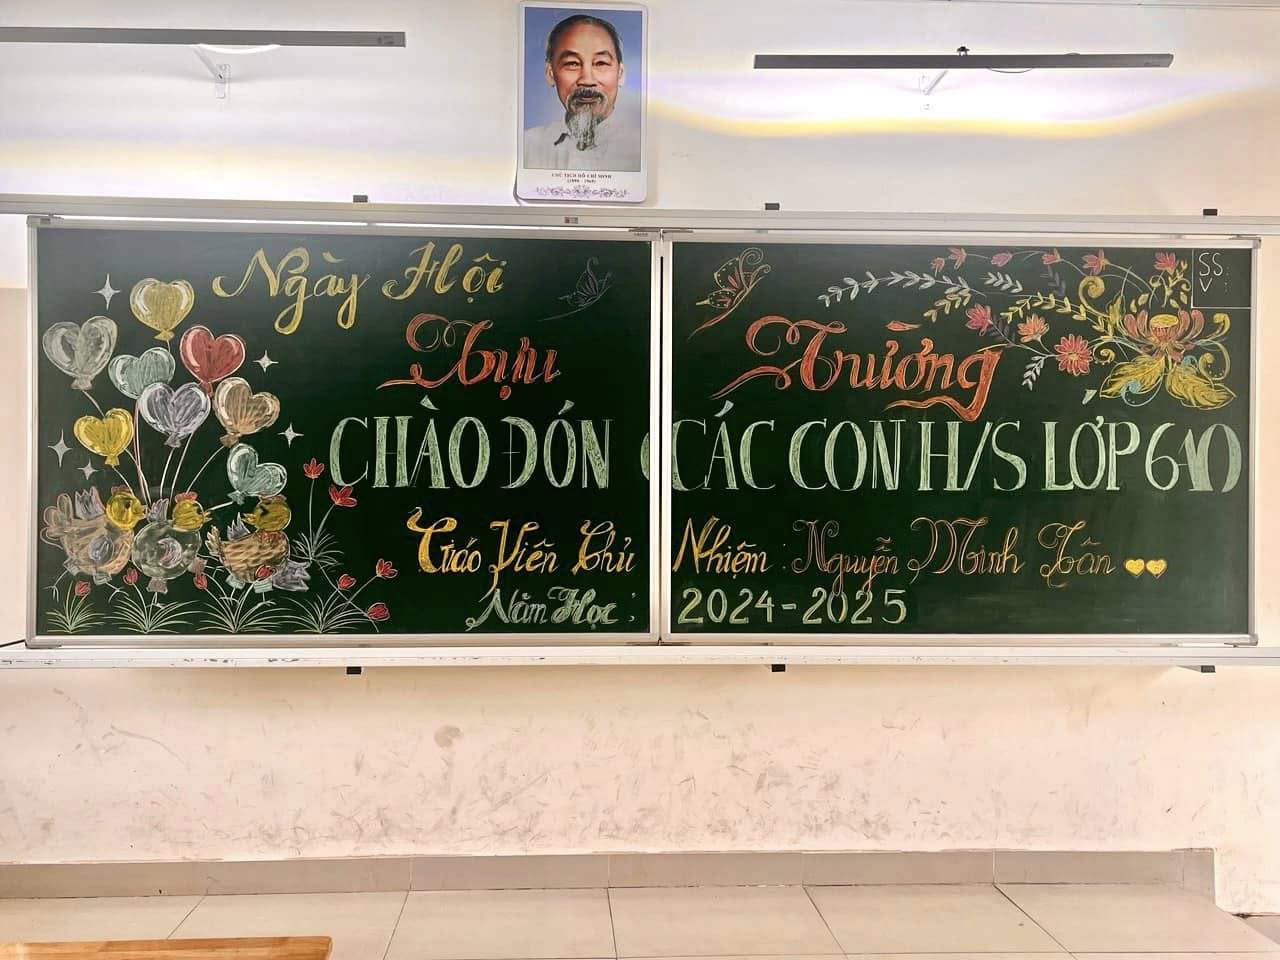 CHỦ TỊCH HỒ CHÍ MINH
(1890 - 1969)
Ngày Hội
Tựu Trường
SS:
V:
CHÀO ĐÓN CÁC CON H/S LỚP 6A10
Giáo Viên Chủ Nhiệm : Nguyễn Minh Tân
Năm Học : 2024-2025